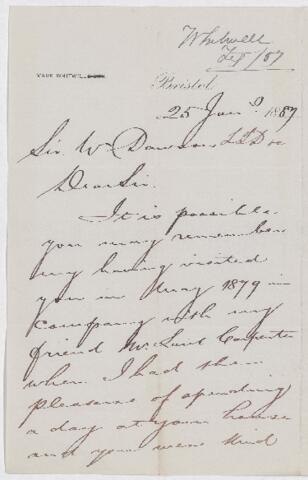 Whitwell
Feb/87
MARK WHITWILL
Bristol
25 Jany 1887
Sir Wm Dawson LLD &c
Dear Sir.
It is possible
you may remember
my having visited
you in May 1879 in
company with my
friend Mr Lant Carpenter
when I had the
pleasure of spending
a day at your house
and you were kind